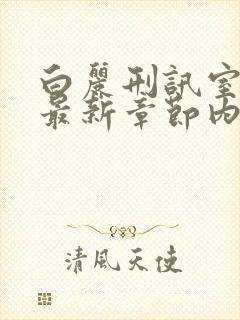 白麗刑訊室
最新章節內
清風天使